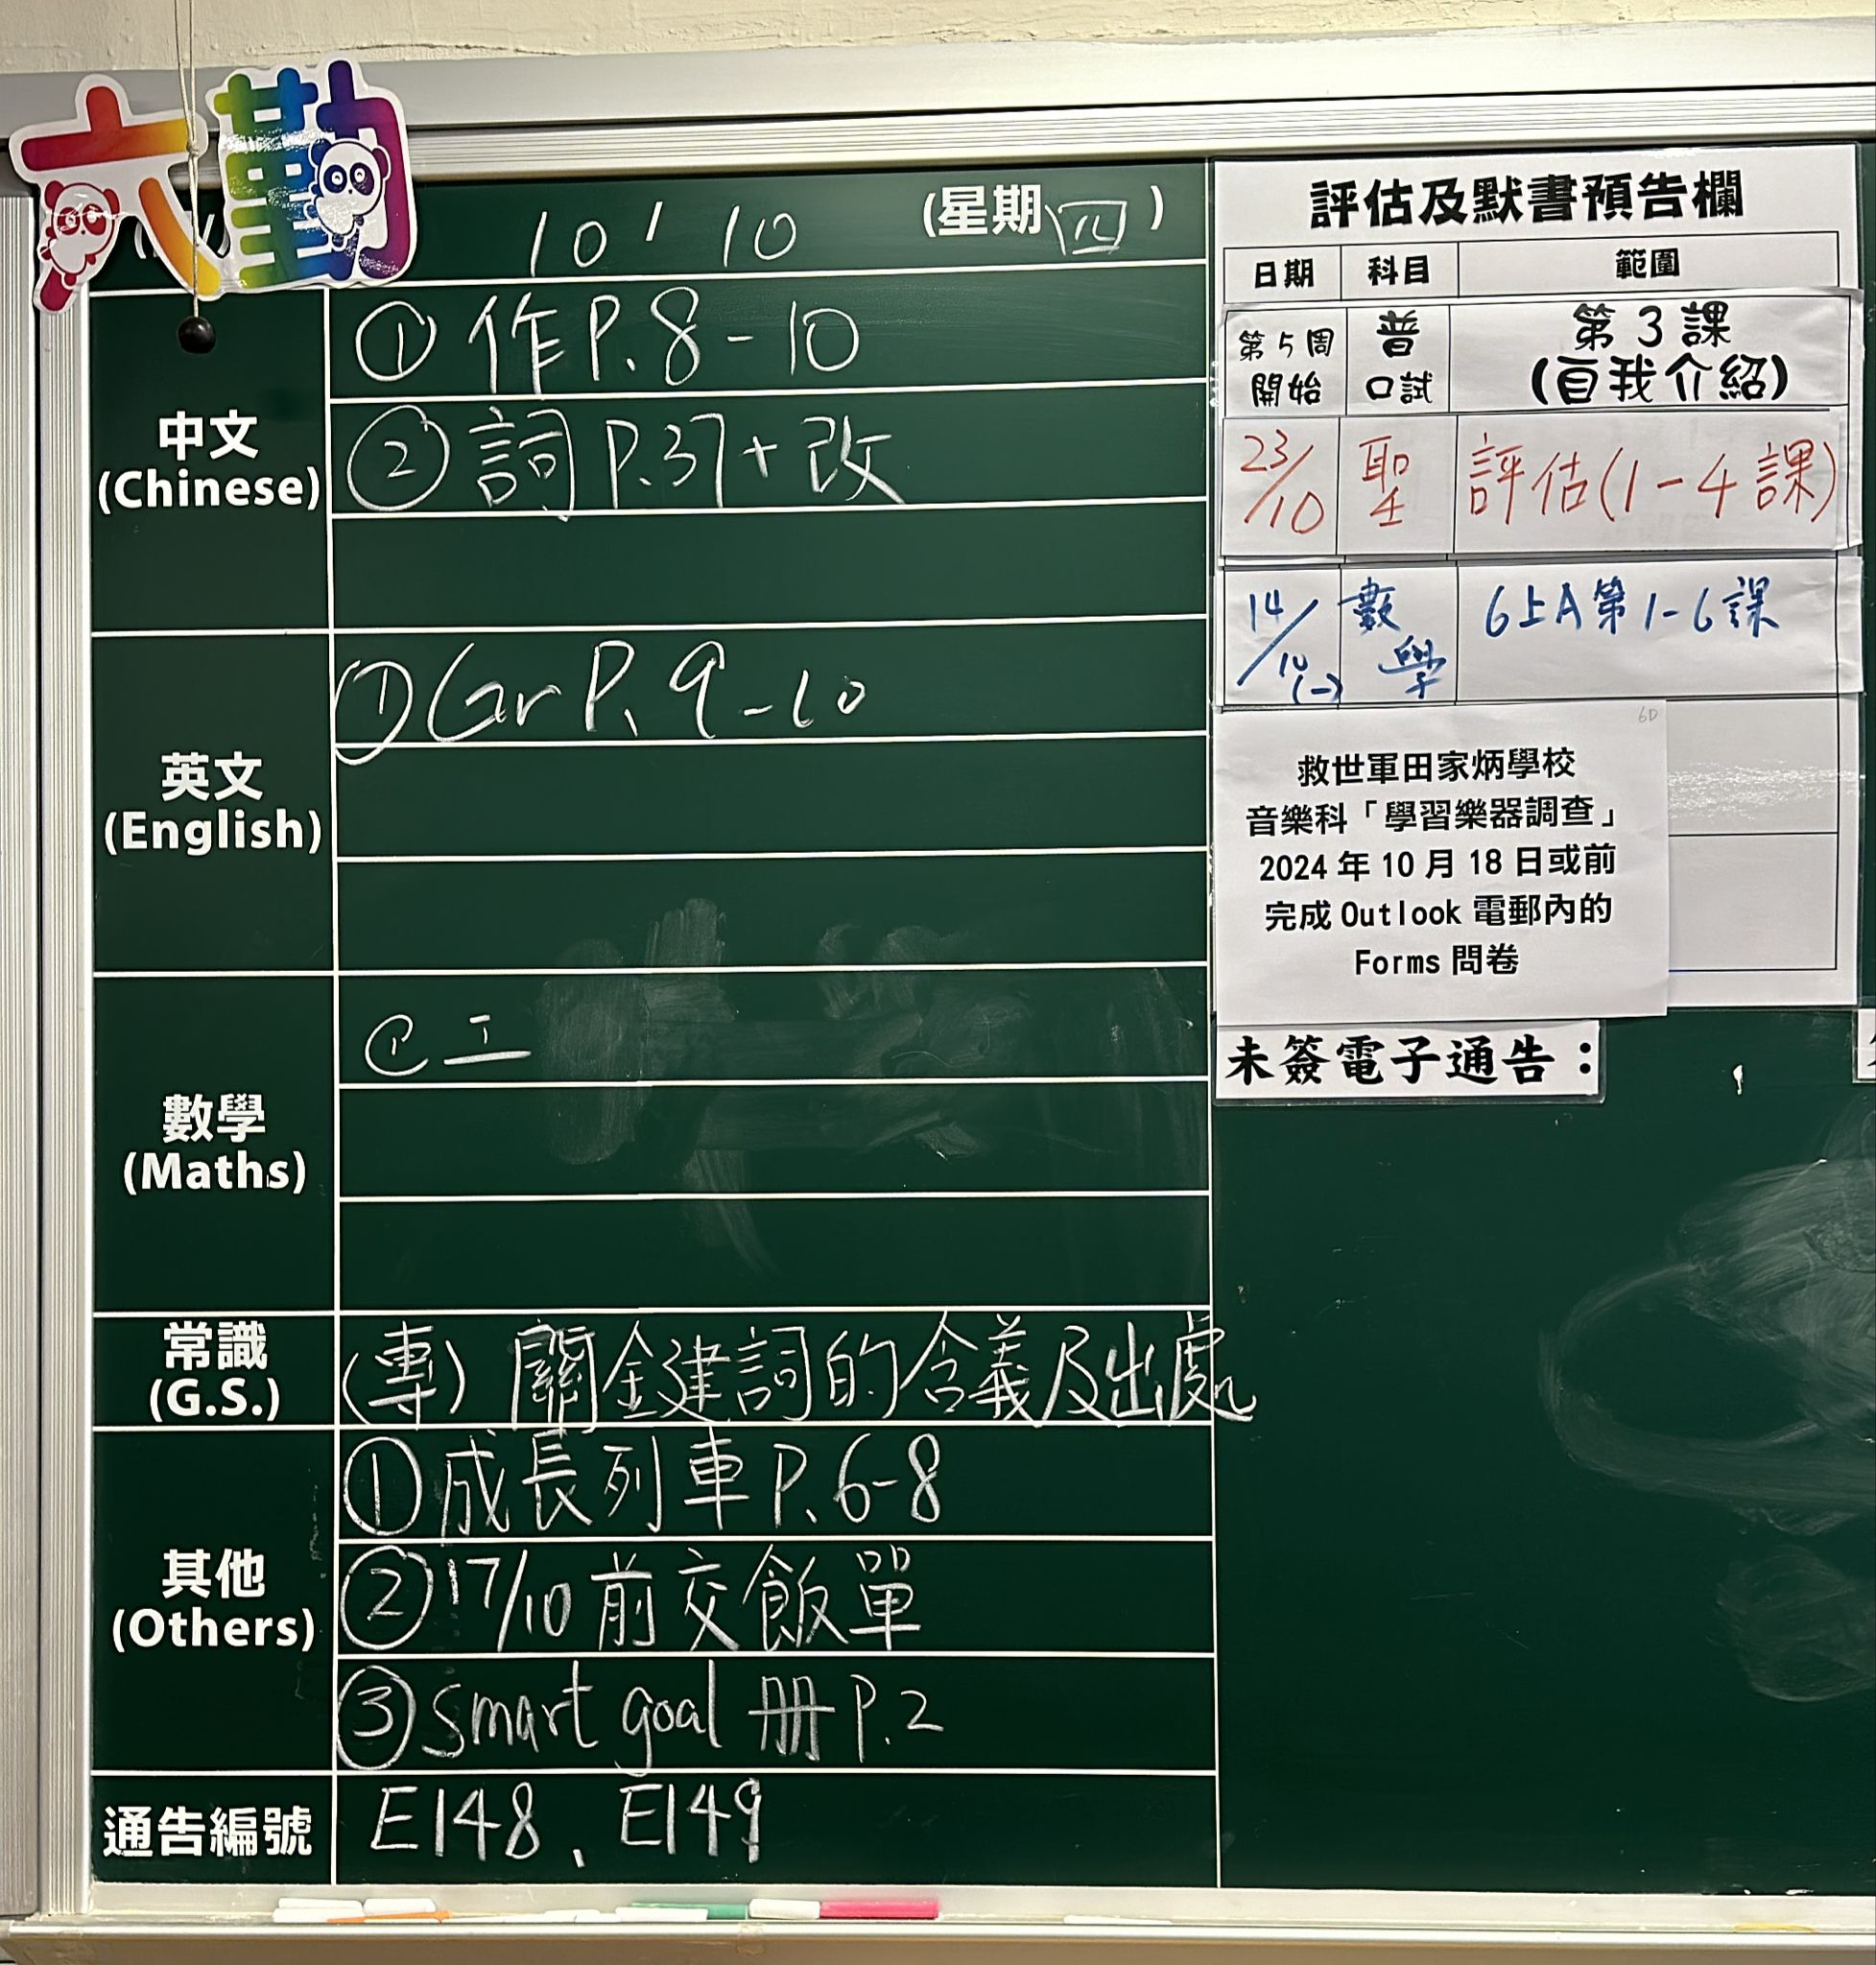 六勤
10 / 10 (星期四)
中文
(Chinese)
① 作 P.8-10
② 詞 P.37 + 改
英文
(English)
① Gr P. 9-10
數學
(Maths)
① 工
常識
(G.S.)
(專) 關鍵詞的含義及出處
其他
(Others)
① 成長列車 P.6-8
② 17/10 前交飯單
③ smart goal 冊 P.2
通告編號
E148、E149
評估及默書預告欄
日期 科目 範圍
第5周開始 普口試 第3課(自我介紹)
23/10 聖 評估(1-4課)
14/10(一) 數學 6上A第1-6課
6D
救世軍田家炳學校
音樂科「學習樂器調查」
2024 年 10 月 18 日或前
完成 Outlook 電郵內的
Forms 問卷
未簽電子通告：